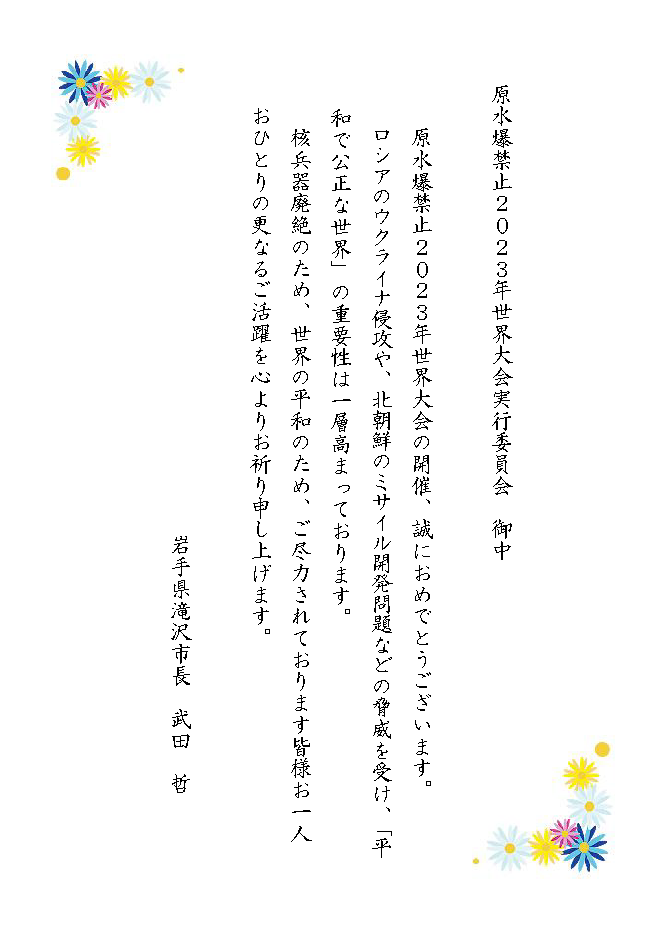 原水爆禁止２０２３年世界大会実行委員会　御中
原水爆禁止２０２３年世界大会の開催、誠におめでとうございます。
ロシアのウクライナ侵攻や、北朝鮮のミサイル開発問題などの脅威を受け、「平
和で公正な世界」の重要性は一層高まっております。
核兵器廃絶のため、世界の平和のため、ご尽力されております皆様お一人
おひとりの更なるご活躍を心よりお祈り申し上げます。
岩手県滝沢市長　武田　哲